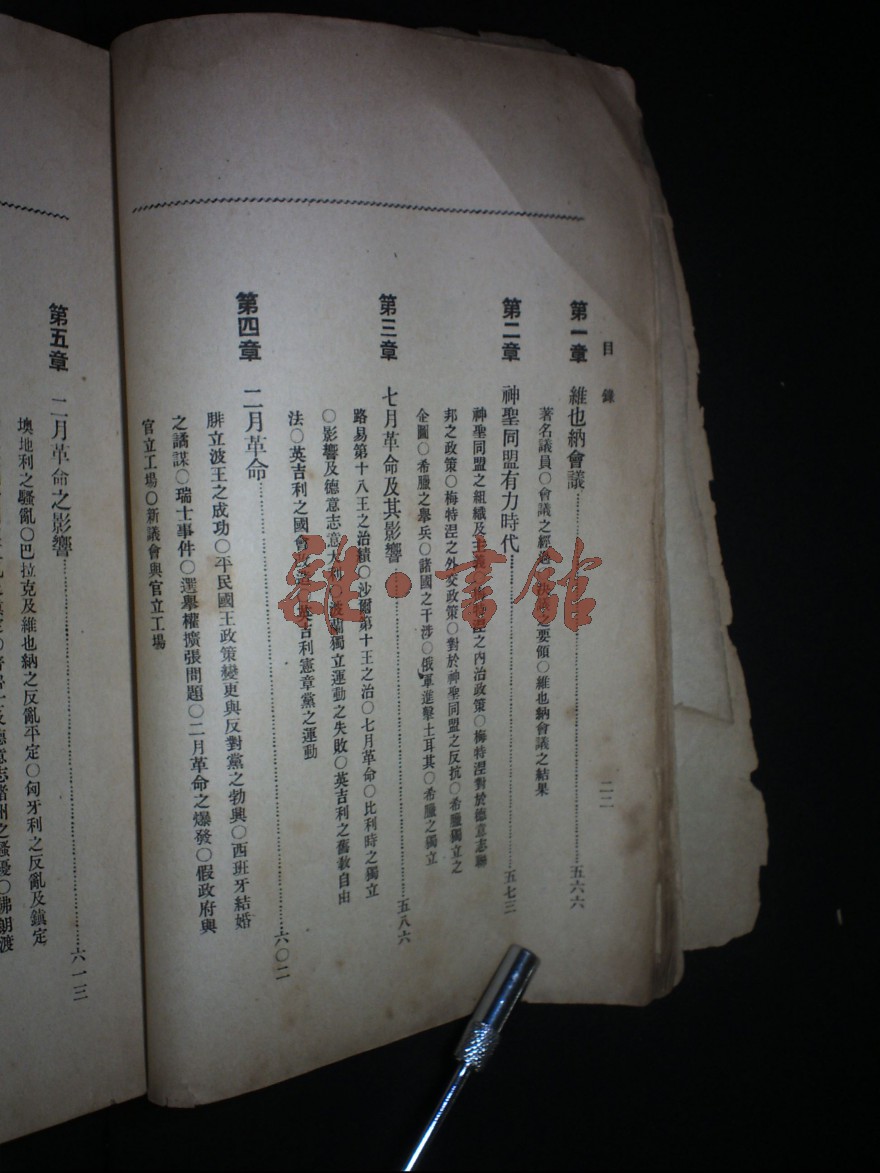 目錄
二二
第一章 維也納會議……五六六
著名議員○會議之經過○決議之要領○維也納會議之結果
第二章 神聖同盟有力時代……五七三
神聖同盟之組織及主義○梅特涅之內治政策○梅特涅對於德意志聯
邦之政策○梅特涅之外交政策○對於神聖同盟之反抗○希臘獨立之
企圖○希臘之舉兵○諸國之干涉○俄軍進擊土耳其○希臘之獨立
第三章 七月革命及其影響……五八六
路易第十八王之治績○沙爾第十王之治○七月革命○比利時之獨立
○影響及德意志意大利○波蘭獨立運動之失敗○英吉利之舊救自由
法○英吉利之國會改革○英吉利憲章黨之運動
第四章 二月革命……六〇二
腓立波王之成功○平民國王政策變更與反對黨之勃興○西班牙結婚
之譎謀○瑞士事件○選舉權擴張問題○二月革命之爆發○假政府與
官立工場○新議會與官立工場
第五章 二月革命之影響……六一三
墺地利之騷亂○巴拉克及維也納之反亂平定○匈牙利之反亂及鎮定
德意志諸州之騷擾○佛朗渡
雜·書館